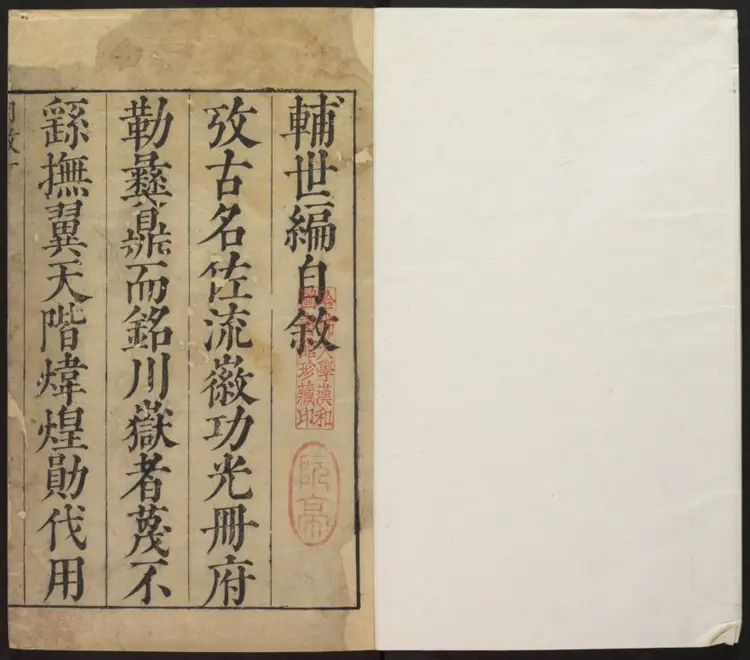 輔世編自敘
攷古名佐流徽功光冊府
勒彝鼎而銘川嶽者蔑不
繇撫翼天階煒煌勛代用
哈佛大學漢和
圖書館珍藏印